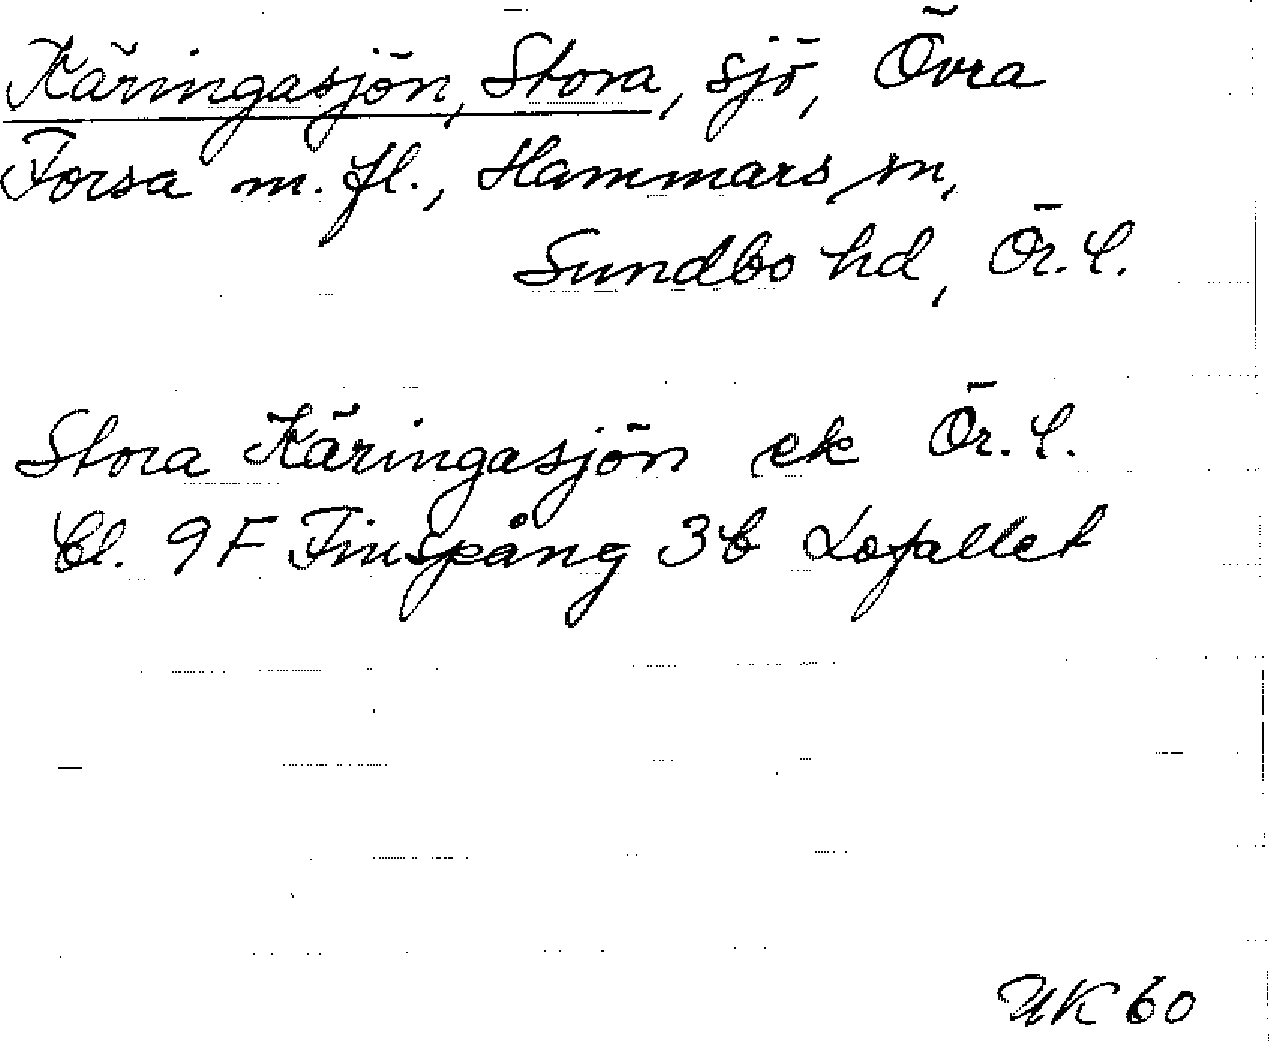 Käringasjön, Stora, sjö, Övra
Forsa m. fl., Hammars sn,
Sundbo hd, Ör. l.
Stora Käringasjön ek Ör. l.
Bl. 9F Finspång 3b Lofallet
UK 60